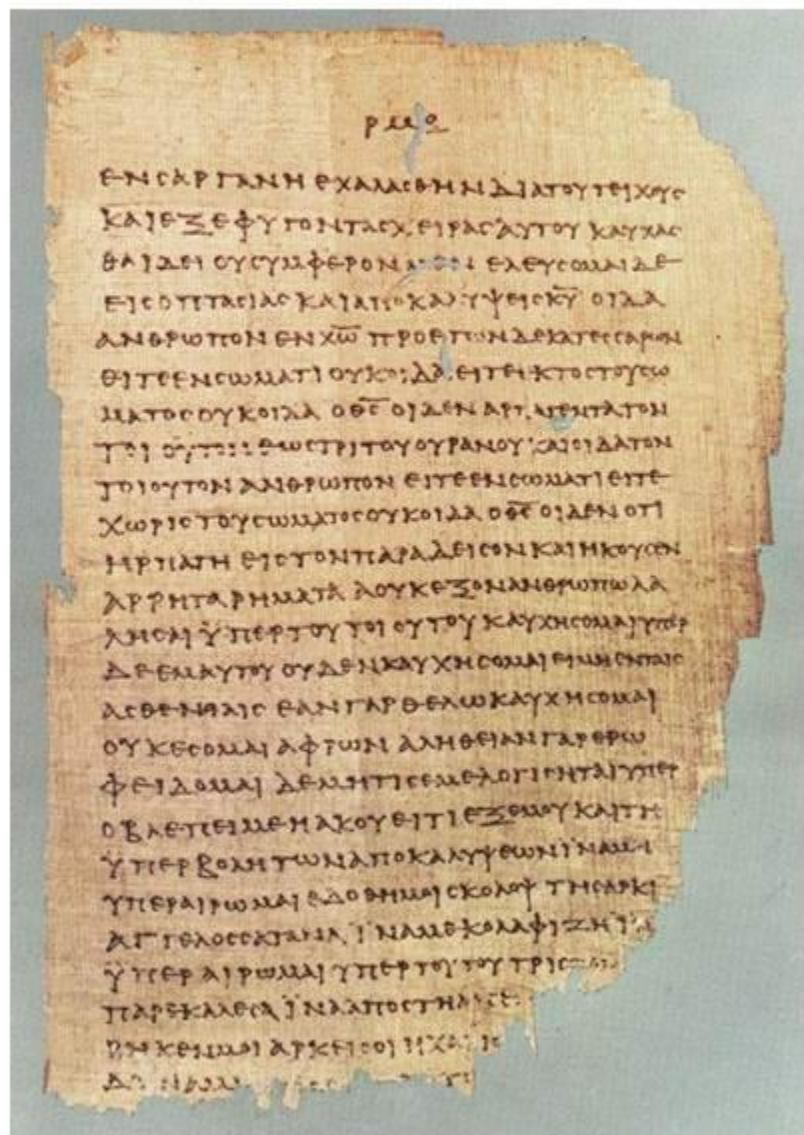 ΡΜΘ
ΕΝ ΣΑΡΓΑΝΗ ΕΧΑΛΑΣΘΗΝ ΔΙΑ ΤΟΥ ΤΕΙΧΟΥΣ
ΚΑΙ ΕΞΕΦΥΓΟΝ ΤΑΣ ΧΕΙΡΑΣ ΑΥΤΟΥ ΚΑΥΧΑΣ
ΘΑΙ ΔΕΙ ΟΥ ΣΥΜΦΕΡΟΝ ΜΕΝ ΕΛΕΥΣΟΜΑΙ ΔΕ
ΕΙΣ ΟΠΤΑΣΙΑΣ ΚΑΙ ΑΠΟΚΑΛΥΨΕΙΣ Κ̅Υ̅ ΟΙΔΑ
ΑΝΘΡΩΠΟΝ ΕΝ Χ̅Ω̅ ΠΡΟ ΕΤΩΝ ΔΕΚΑΤΕΣΣΑΡΩΝ
ΕΙΤΕ ΕΝ ΣΩΜΑΤΙ ΟΥΚ ΟΙΔΑ ΕΙΤΕ ΕΚΤΟΣ ΤΟΥ ΣΩ
ΜΑΤΟΣ ΟΥΚ ΟΙΔΑ Ο Θ̅Σ̅ ΟΙΔΕΝ ΑΡΠΑΓΕΝΤΑ ΤΟΝ
ΤΟΙΟΥΤΟΝ ΕΩΣ ΤΡΙΤΟΥ ΟΥΡΑΝΟΥ ΚΑΙ ΟΙΔΑ ΤΟΝ
ΤΟΙΟΥΤΟΝ ΑΝΘΡΩΠΟΝ ΕΙΤΕ ΕΝ ΣΩΜΑΤΙ ΕΙΤΕ
ΧΩΡΙΣ ΤΟΥ ΣΩΜΑΤΟΣ ΟΥΚ ΟΙΔΑ Ο Θ̅Σ̅ ΟΙΔΕΝ ΟΤΙ
ΗΡΠΑΓΗ ΕΙΣ ΤΟΝ ΠΑΡΑΔΕΙΣΟΝ ΚΑΙ ΗΚΟΥΣΕΝ
ΑΡΡΗΤΑ ΡΗΜΑΤΑ Α ΟΥΚ ΕΞΟΝ ΑΝΘΡΩΠΩ ΛΑ
ΛΗΣΑΙ ΫΠΕΡ ΤΟΥ ΤΟΙΟΥΤΟΥ ΚΑΥΧΗΣΟΜΑΙ ΥΠΕΡ
ΔΕ ΕΜΑΥΤΟΥ ΟΥΔΕΝ ΚΑΥΧΗΣΟΜΑΙ ΕΙ ΜΗ ΕΝ ΤΑΙΣ
ΑΣΘΕΝΕΙΑΙΣ ΕΑΝ ΓΑΡ ΘΕΛΩ ΚΑΥΧΗΣΟΜΑΙ
ΟΥΚ ΕΣΟΜΑΙ ΑΦΡΩΝ ΑΛΗΘΕΙΑΝ ΓΑΡ ΕΡΩ
ΦΕΙΔΟΜΑΙ ΔΕ ΜΗ ΤΙΣ ΕΜΕ ΛΟΓΙΣΗΤΑΙ ΥΠΕΡ
Ο ΒΛΕΠΕΙ ΜΕ Η ΑΚΟΥΕΙ ΤΙ ΕΞ ΕΜΟΥ ΚΑΙ ΤΗ
ΫΠΕΡΒΟΛΗ ΤΩΝ ΑΠΟΚΑΛΥΨΕΩΝ ΪΝΑ ΜΗ
ΥΠΕΡΑΙΡΩΜΑΙ ΕΔΟΘΗ ΜΟΙ ΣΚΟΛΟΨ ΤΗ ΣΑΡΚΙ
ΑΓΓΕΛΟΣ ΣΑΤΑΝΑ ΪΝΑ ΜΕ ΚΟΛΑΦΙΖΗ ΪΝΑ
ΫΠΕΡΑΙΡΩΜΑΙ ΥΠΕΡ ΤΟΥΤΟΥ ΤΡΙΣ
ΠΑΡΕΚΑΛΕΣΑ ΪΝΑ ΑΠΟΣΤΗ
ΡΗΚΕΝ ΜΟΙ ΑΡΚΕΙ ΣΟΙ Η ΧΑΡΙΣ
ΔΥΝΑΜΙΣ